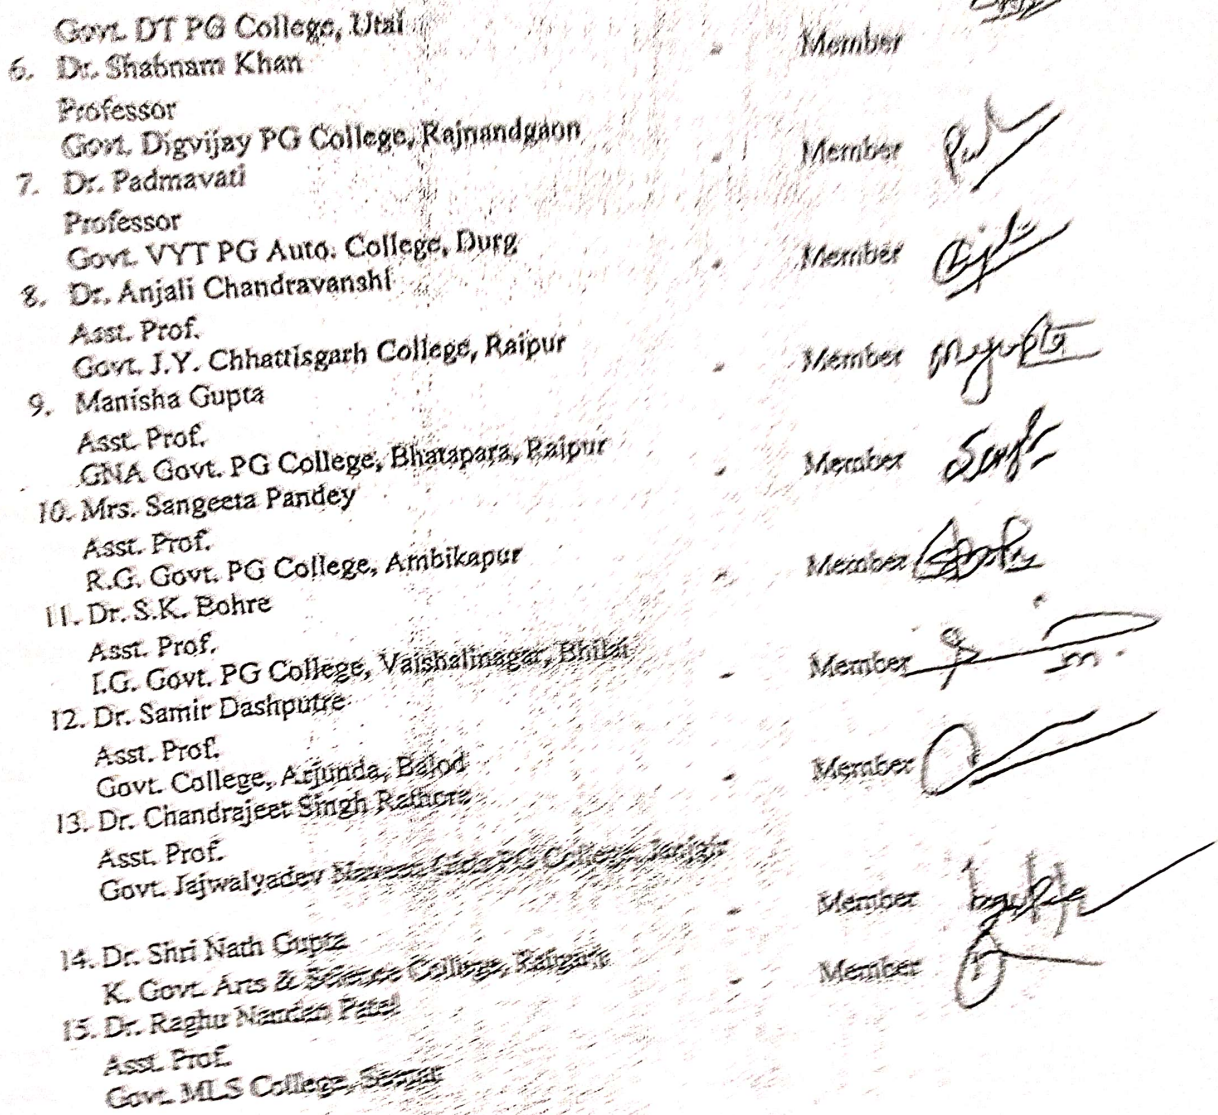 Govt. DT PG College, Utai
Member
6. Dr. Shabnam Khan
Professor
Govt. Digvijay PG College, Rajnandgaon
- Member
7. Dr. Padmavati
Professor
Govt. VYT PG Auto. College, Durg
- Member
8. Dr. Anjali Chandravanshi
Asst. Prof.
Govt. J.Y. Chhattisgarh College, Raipur
- Member mgupta
9. Manisha Gupta
Asst. Prof.
GNA Govt. PG College, Bhatapara, Raipur
- Member
10. Mrs. Sangeeta Pandey
Asst. Prof.
R.G. Govt. PG College, Ambikapur
- Member
11. Dr. S.K. Bohre
Asst. Prof.
I.G. Govt. PG College, Vaishalinagar, Bhilai
- Member
12. Dr. Samir Dashputre
Asst. Prof.
Govt. College, Arjunda, Balod
- Member
13. Dr. Chandrajeet Singh Rathore
Asst. Prof.
Govt. Jajwalyadev Naveen Girls PG College, Janjgir
- Member
14. Dr. Shri Nath Gupta
K. Govt. Arts & Science College, Raigarh
- Member
15. Dr. Raghu Nandan Patel
Asst. Prof.
Govt. MLS College,